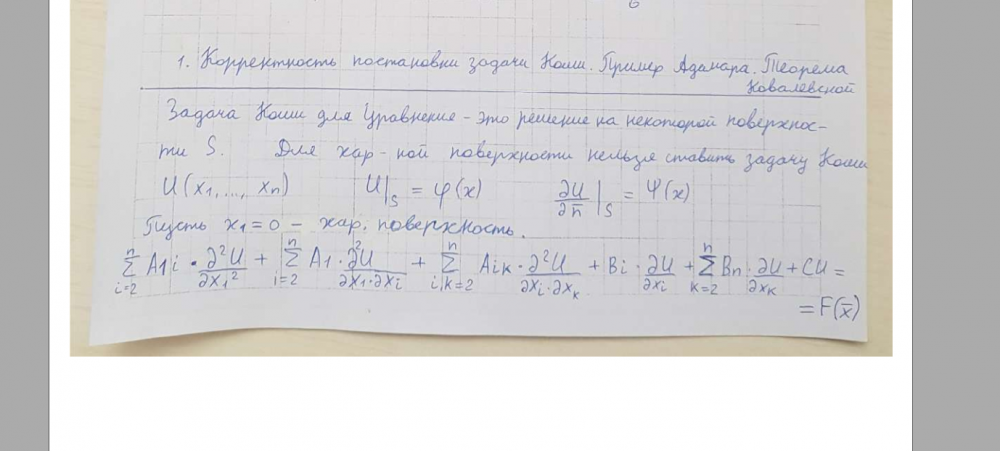 1. Корректность постановки задачи Коши. Пример Адамара. Теорема
Ковалевской
Задача Коши для Уравнения - это решение на некоторой поверхнос-
ти S. Для хар-ной поверхности нельзя ставить задачу Коши
U(x₁,..., xₙ) U|_S = φ(x) ∂U/∂n̄|_S = ψ(x)
Пусть x₁=0 - хар. поверхность.
∑_{i=2}^{n} A₁i · ∂²U/∂x₁² + ∑_{i=2}^{n} A₁ · ∂²U/∂x₁·∂xᵢ + ∑_{i,k=2}^{n} Aᵢₖ · ∂²U/∂xᵢ·∂xₖ + Bᵢ · ∂U/∂xᵢ + ∑_{k=2}^{n} Bₙ · ∂U/∂xₖ + CU =
= F(x̄)